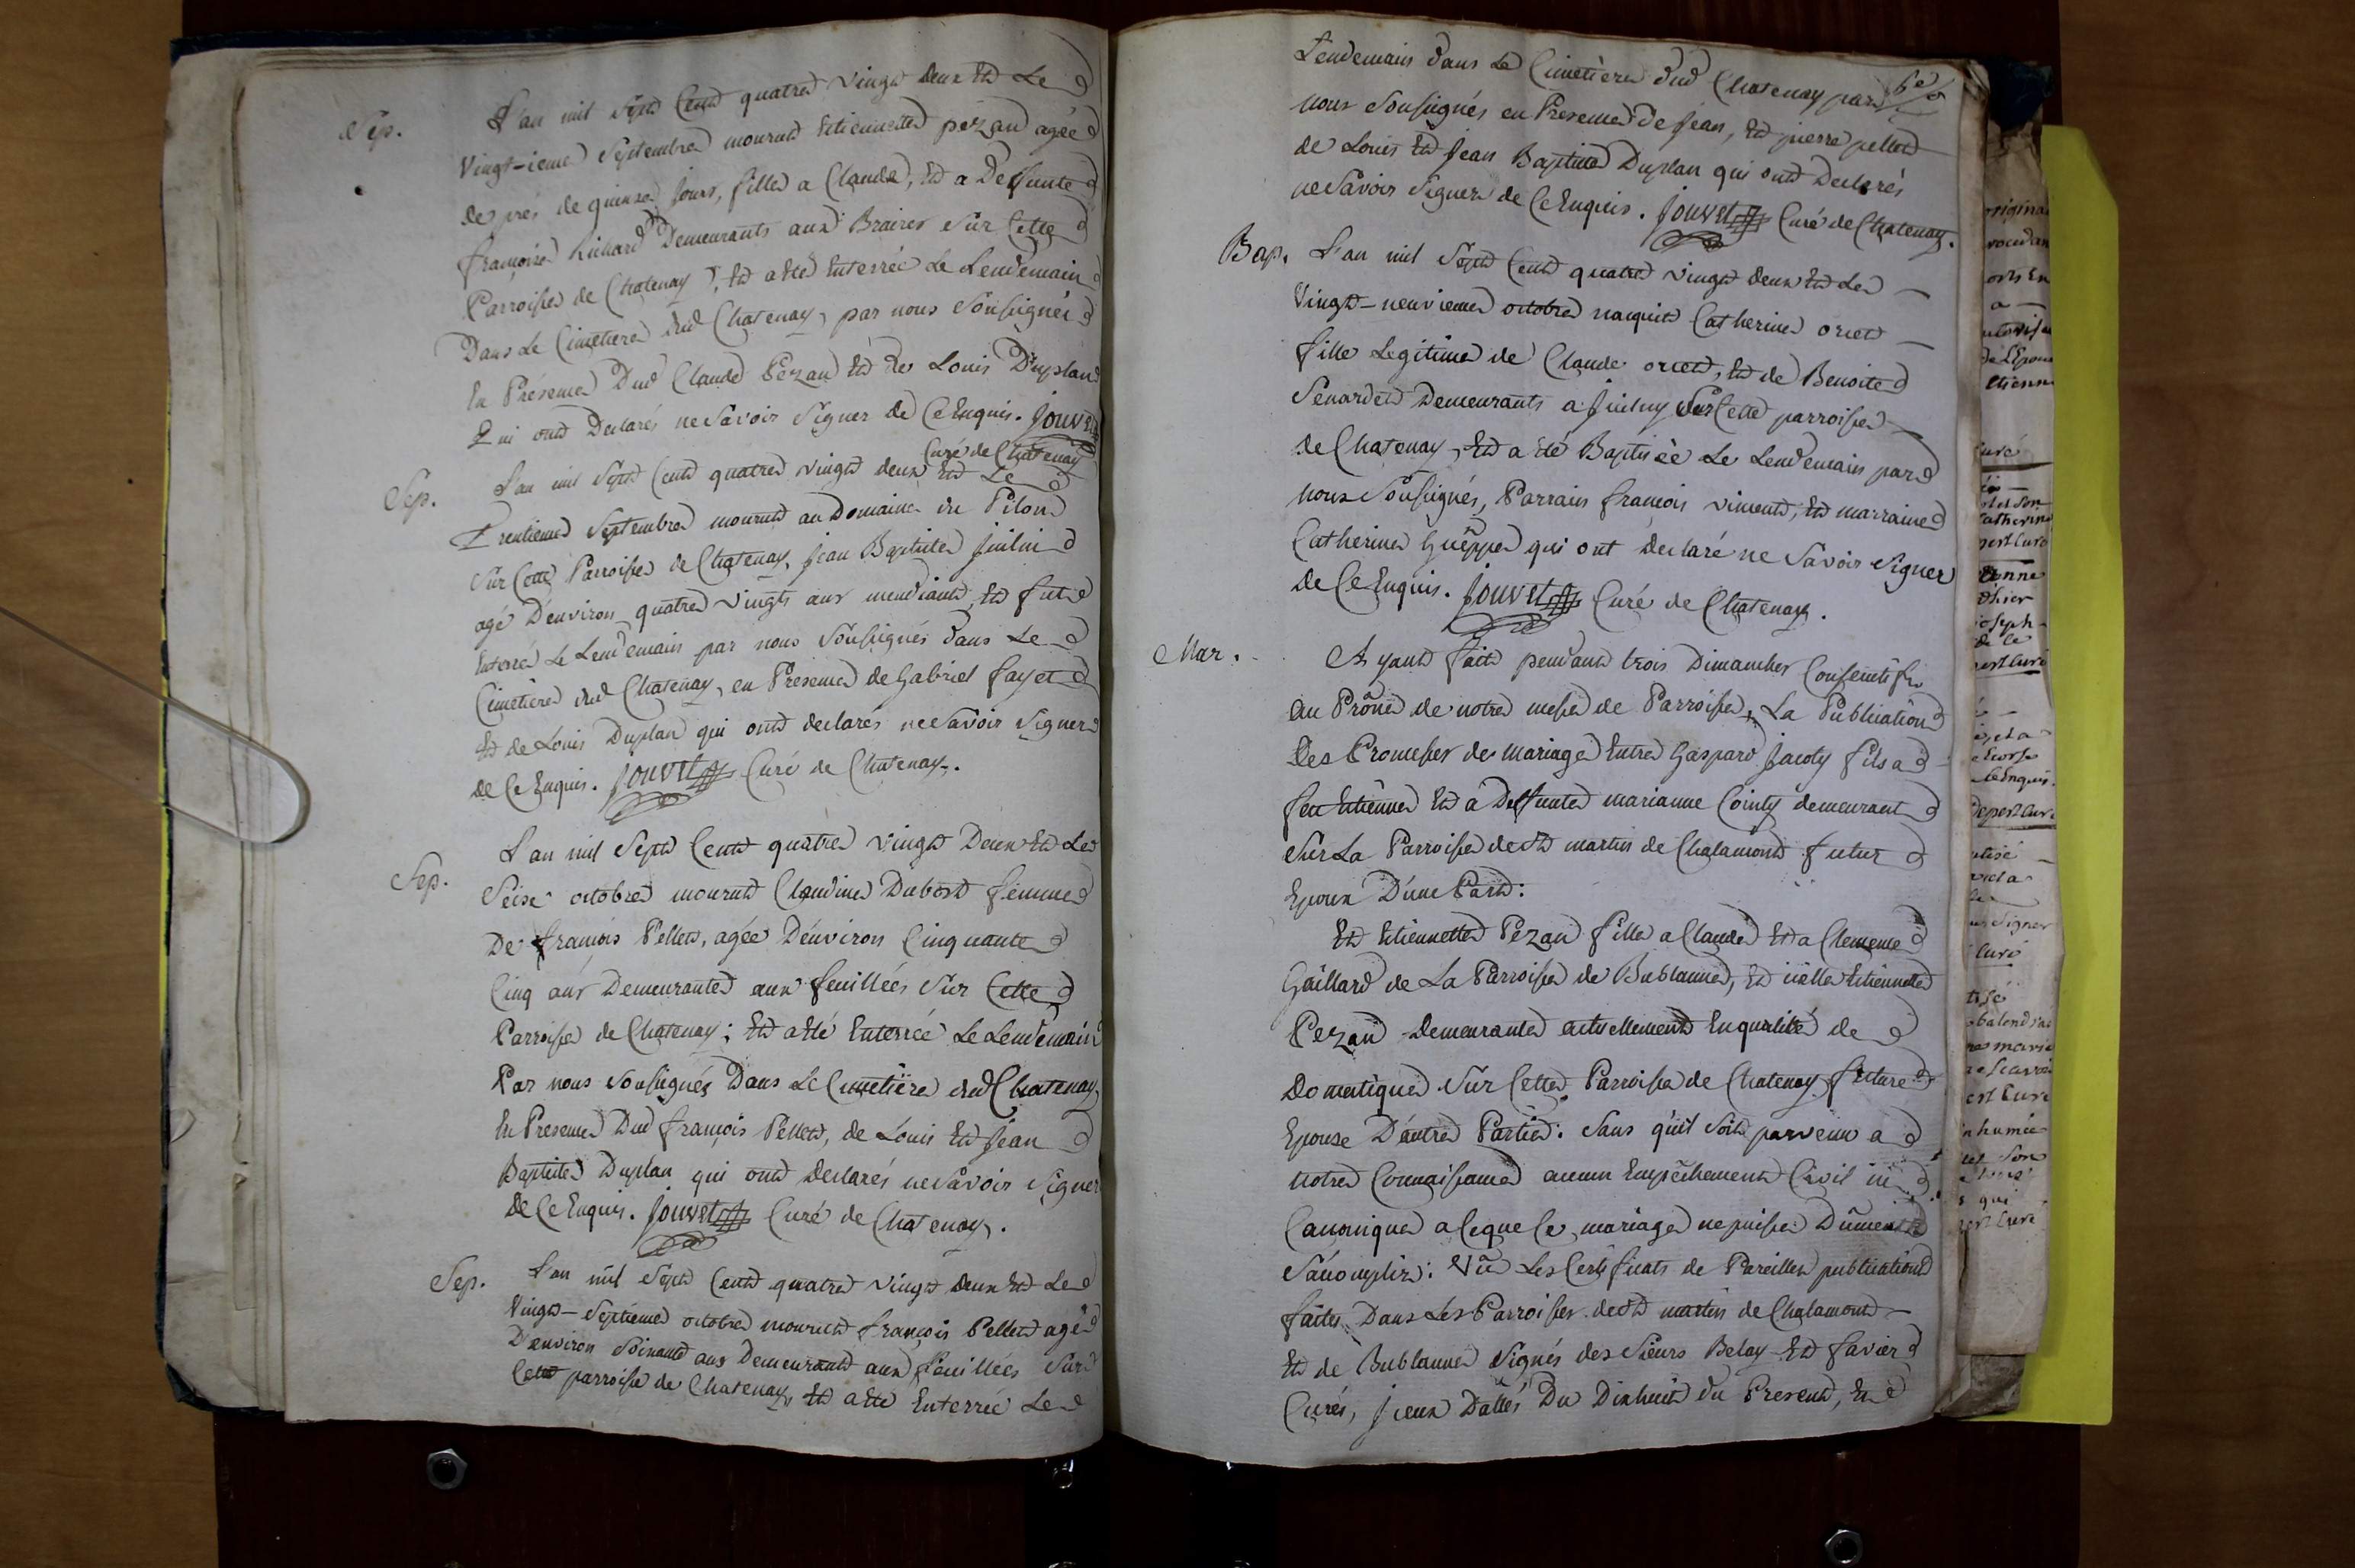 Sep. L'an mil Sept Cent quatre vingt deux Et Le
Vingt-ieme Septembre mourut Etiennette pezan agée
de prés de quinze Jours, fille a Claude, Et a Deffunte
françoise Richard Demeurants aux Braires Sur Cette
Parroisse de Chatenay, Et a Eté Enterrée Le Lendemain
Dans Le Cimetiere dud Chatenay, par nous Soussignés
En Présence Dud Claude Pezan Et de Louis Duplan
Qui ont Declarés ne Savoir Signer de Ce Enquis. Jouvet
Curé de Chatenay
Sep. L'an mil Sept Cent quatre vingt deux Et Le
Trentieme Septembre mourut au Domaine du Pilon
Sur Cette Parroisse de Chatenay, Jean Baptiste
agé D'environ quatre vingts ans mendiant, Et fut
Enterré Le Lendemain par nous Soussignés dans Le
Cimetiere dud Chatenay, en Presence de Gabriel fayet
Et de Louis Duplan qui ont declarés ne Savoir Signer
de Ce Enquis. Jouvet Curé de Chatenay.
Sep. L'an mil Sept Cent quatre vingt Deux Et Le
Seise octobre mourut Claudine Dubost femme
De françois Pellet, agée D'environ Cinquante
Cinq ans Demeurante aux feuillées Sur Cette
Parroisse de Chatenay; Et a Eté Enterrée Le Lendemain
Par nous Soussignés Dans Le Cimetiere dud Chatenay,
En Presence Dud françois Pellet, de Louis Et Jean
Baptiste Duplan qui ont Declarés ne Savoir Signer
De Ce Enquis. Jouvet Curé de Chatenay.
Sep. L'an mil Sept Cent quatre vingt deux Et Le
Vingt-Septieme octobre mourut françois Pellet agé
D'environ Soixante ans Demeurant aux feuillées Sur
Cette parroisse de Chatenay, Et a Eté Enterré Le
Lendemain dans Le Cimetiere dud Chatenay par
nous Soussignés en Presence de Jean, Et pierre pellet
de Louis Et Jean Baptiste Duplan qui ont Declarés
ne Savoir Signer de Ce Enquis. Jouvet Curé de Chatenay.
Bap. L'an mil Sept Cent quatre vingt deux Et Le
Vingt-neuvieme octobre naquit Catherine oret
fille Legitime de Claude oret, Et de Benoite
Senardet Demeurants a Juilny Sur Cette parroisse
de Chatenay, Et a été Baptisée Le Lendemain par
nous Soussignés, Parrain françois viment, Et marraine
Catherine Gueppe qui ont declaré ne Savoir Signer
de Ce Enquis. Jouvet Curé de Chatenay.
Mar. Ayant fait pendant trois Dimanches Consecutifs
au Prône de notre messe de Parroisse, La Publication
Des Promesses de mariage Entre Gaspard Jacoty fils a
feu Etienne Et a Deffunte marianne Cointy demeurant
Sur La Parroisse de St martin de Chalamont futur
Epoux D'une Part:
Et Etiennette Pezan fille a Claude Et a Clemence
Gaillard de La Parroisse de Bublanne, Et icelle Etiennette
Pezan Demeurante actuellement En qualité de
Domestique Sur Cette Parroisse de Chatenay future
Epouse D'autre Partie: Sans qu'il Soit parvenu a
notre Connaissance aucun Empêchement Civil ni
Canonique a Ceque Ce mariage ne puisse Dûment
S'accomplir: Vû Les Certificats de Pareilles publications
faites Dans Les Parroisses de St martin de Chalamont
Et de Bublanne Signés des Sieurs Belay Et favier
Curés, Iceux Dattés Du Dixhuit du Present, Et